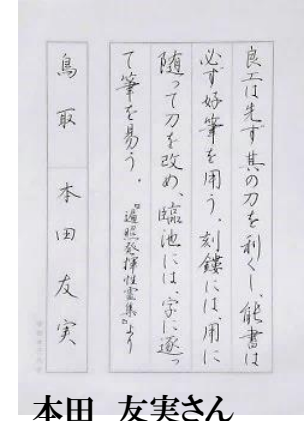 良工は先ず其の刀を利くし、能書は
必ず好筆を用う。刻鏤には、用に
随って刀を改め、臨池には、字に逐っ
て筆を易う。
『遍照発揮性霊集』より
鳥取 本田友実
本田 友実さん